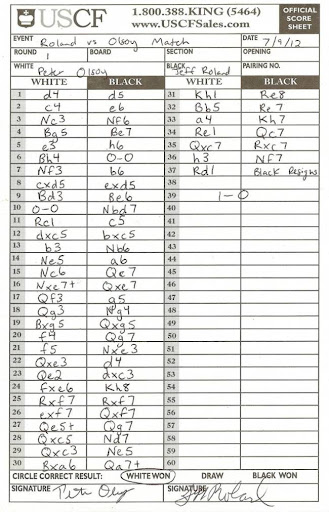 USCF
1.800.388.KING (5464)
www.USCFSales.com
OFFICIAL SCORE SHEET
EVENT Roland vs Olsoy Match DATE 7/9/12
ROUND 1 BOARD SECTION OPENING
WHITE Peter Olsoy BLACK Jeff Roland PAIRING NO.
WHITE BLACK WHITE BLACK
1 d4 d5 31 Kh1 Re8
2 c4 e6 32 Bb5 Re7
3 Nc3 Nf6 33 a4 Kh7
4 Bg5 Be7 34 Re1 Qc7
5 e3 h6 35 Qxc7 Rxc7
6 Bh4 0-0 36 h3 Nf7
7 Nf3 b6 37 Rd1 Black Resigns
8 cxd5 exd5 38
9 Bd3 Be6 39 1-0
10 0-0 Nbd7 40
11 Rc1 c5 41
12 dxc5 bxc5 42
13 b3 Nb6 43
14 Ne5 a6 44
15 Nc6 Qc7 45
16 Nxe7+ Qxe7 46
17 Qf3 g5 47
18 Qg3 Ng4 48
19 Bxg5 Qxg5 49
20 f4 Qg7 50
21 f5 Nxe3 51
22 Qxe3 d4 52
23 Qe2 dxc3 53
24 fxe6 Kh8 54
25 Rxf7 Rxf7 55
26 exf7 Qxf7 56
27 Qe5+ Qg7 57
28 Qxc5 Nd7 58
29 Qxc3 Ne5 59
30 Bxa6 Qa7+ 60
CIRCLE CORRECT RESULT: WHITE WON DRAW BLACK WON
SIGNATURE SIGNATURE